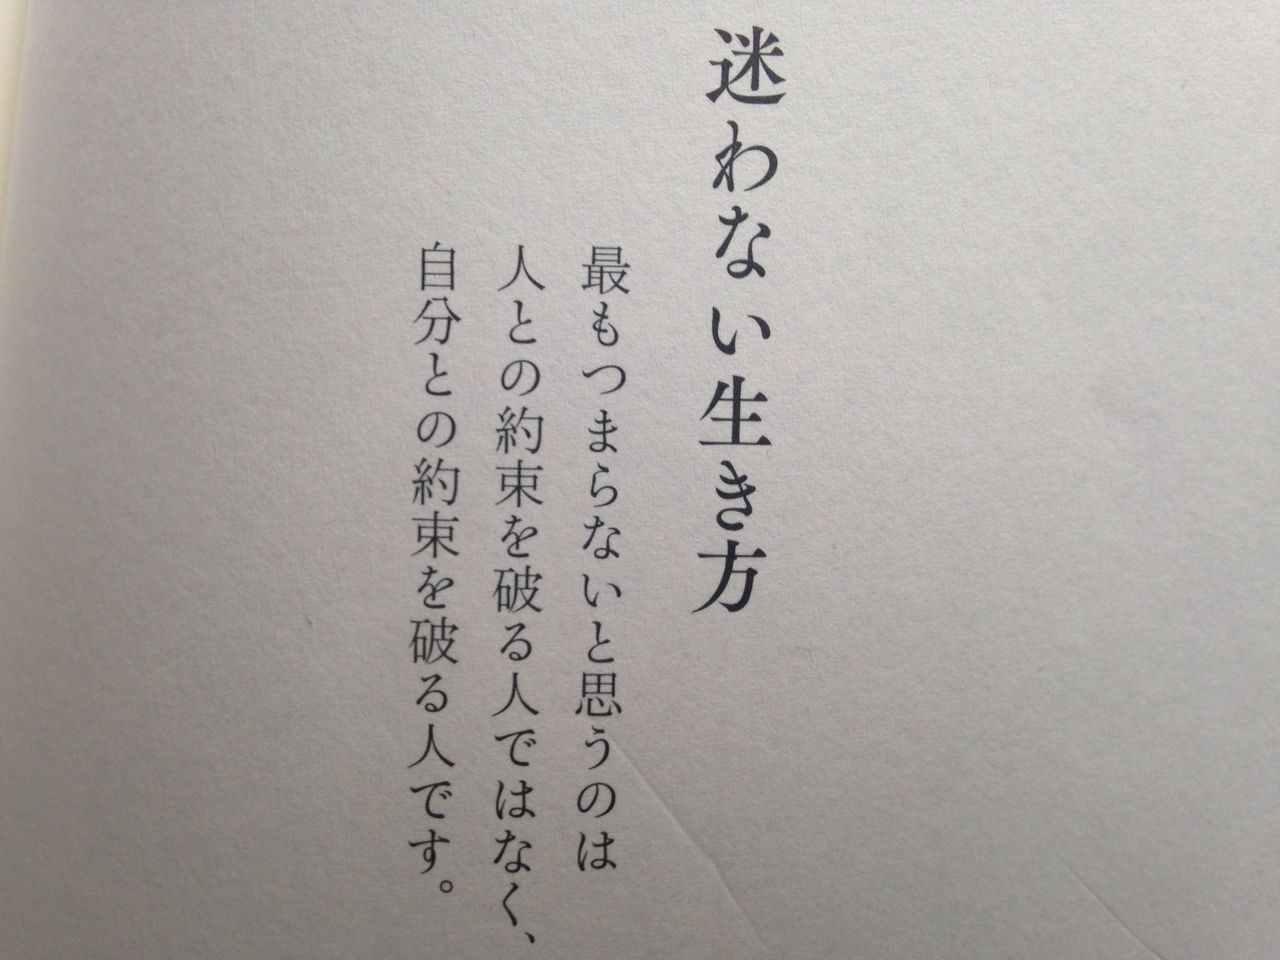 迷わない生き方
最もつまらないと思うのは
人との約束を破る人ではなく、
自分との約束を破る人です。